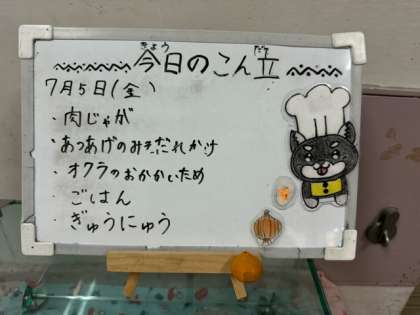 今日のこん立
きょう だて
7月5日(金)
・肉じゃが
・あつあげのみそだれかけ
・オクラのおかかいため
・ごはん
・ぎゅうにゅう